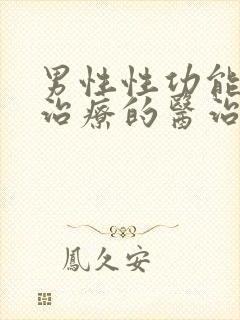 男性性功能
治療的醫治
鳳久安